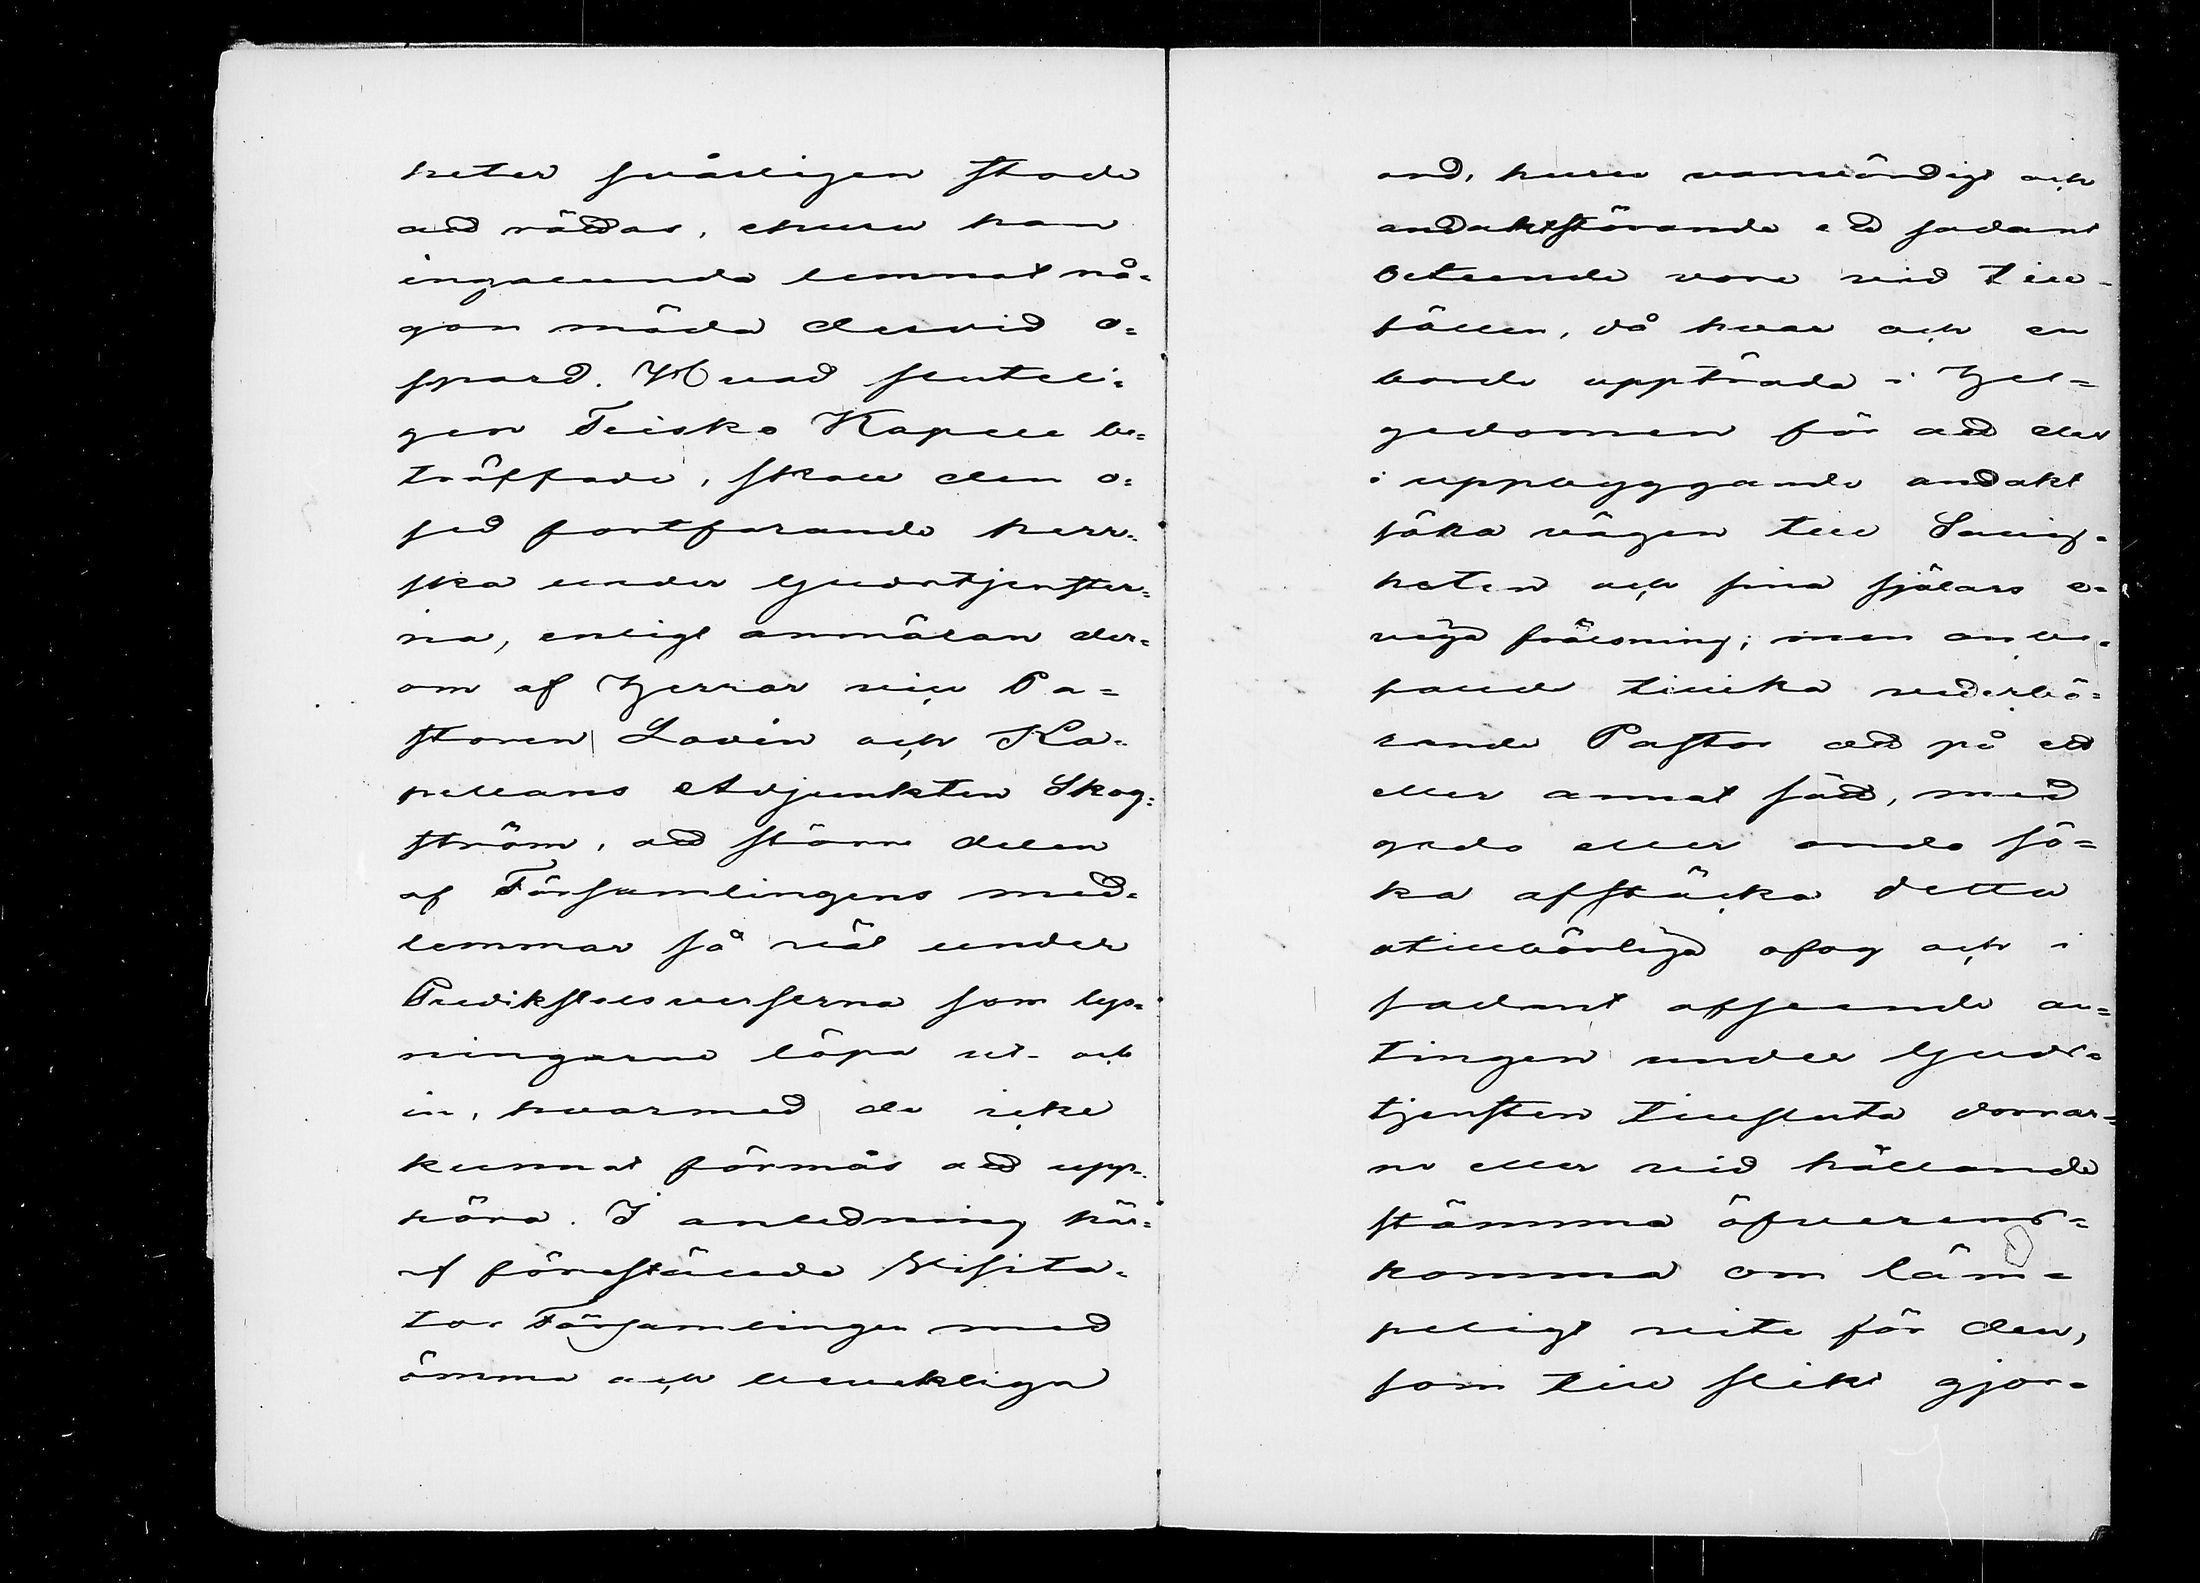 heter svårligen stode
att rättas, churu han
ingalunda lemnat nå-
gon möda dervid o-
spard. Hvad sluteli-
gen Teisko Kapell be-
träffade, skall den o-
sed fortfarande herr-
ska under Gudstjenster-
na, enligt anmälan der-
om af Herrar vice Pa-
storen Lovén och Ka-
pellans Adjunkten Skog-
ström, att större delen
af Församlingens med-
lemmar så väl under
Predikstolsverserna som lys-
ningarne löpa ut- och
in, hvarmed de icke
kunnat förmås att upp-
höra. I anledning här-
af föreställde Visita-
tor Församlingen med
ömma och bevekliga
ord, huru ovärdigt och
andaktstörande ett sådant
beteende vore vid till-
fällen, då hvar och en
borde uppträda i Hel-
gedomen för att der
i uppbyggande andakt
söka vägen till Salig-
heten och sina själars e-
viga frälsning; men anbe-
fallde tillika vederbö-
rande Pastor att på ett
eller annat sätt, med
godo eller ondo sö-
ka afskäcka detta
otillbörliga ofog och i
sådant afseende an-
tingen under Guds-
tjensten tillsluta dörrar-
ne eller vid hållande
stämma öfverens-
komma om läm-
peligt vite för den,
som till slikt gjor-